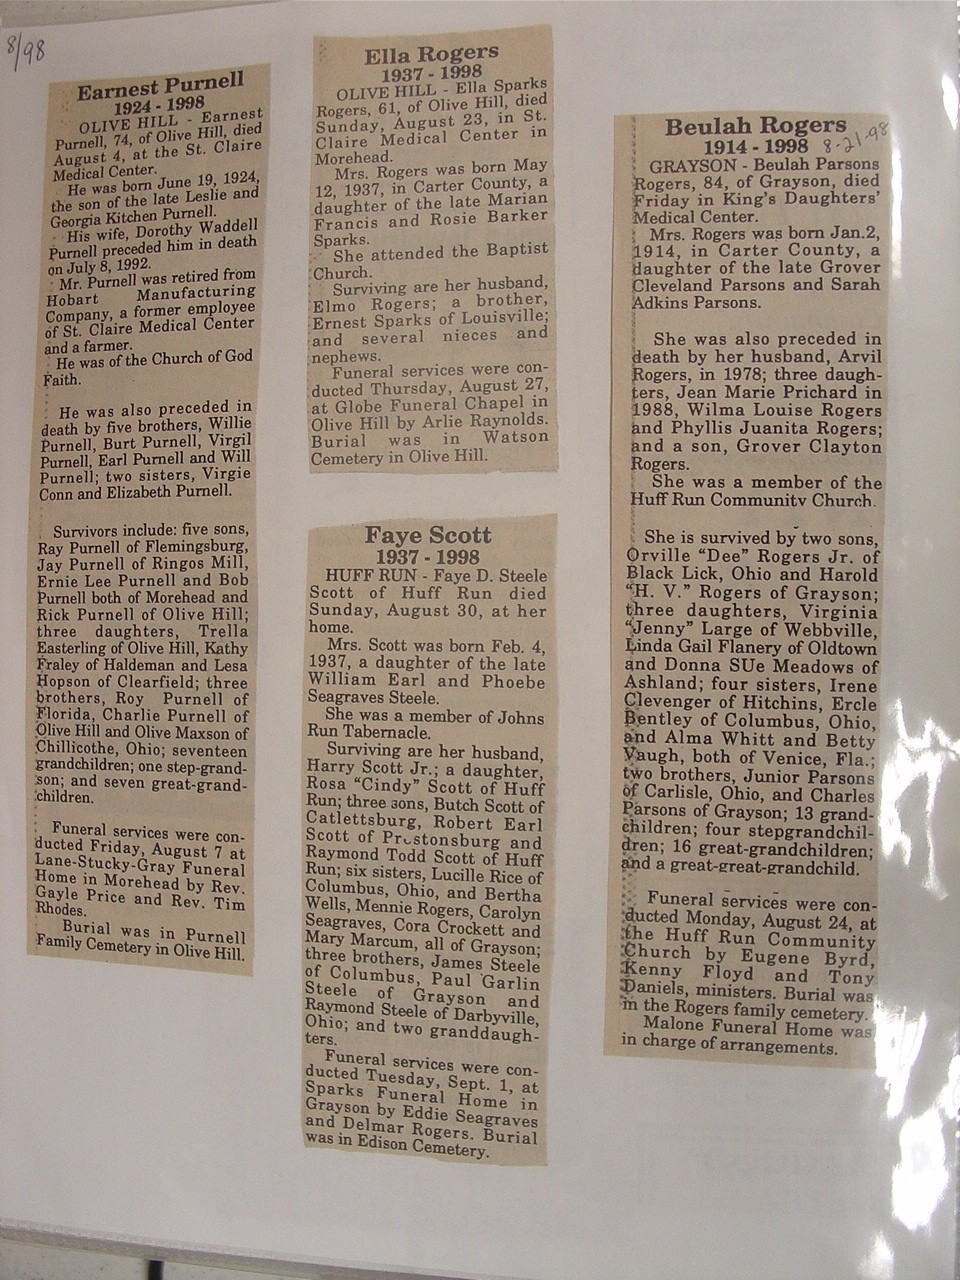 8/98
Earnest Purnell
1924 - 1998
OLIVE HILL - Earnest
Purnell, 74, of Olive Hill, died
August 4, at the St. Claire
Medical Center.
He was born June 19, 1924,
the son of the late Leslie and
Georgia Kitchen Purnell.
His wife, Dorothy Waddell
Purnell preceded him in death
on July 8, 1992.
Mr. Purnell was retired from
Hobart Manufacturing
Company, a former employee
of St. Claire Medical Center
and a farmer.
He was of the Church of God
Faith.
He was also preceded in
death by five brothers, Willie
Purnell, Burt Purnell, Virgil
Purnell, Earl Purnell and Will
Purnell; two sisters, Virgie
Conn and Elizabeth Purnell.
Survivors include: five sons,
Ray Purnell of Flemingsburg,
Jay Purnell of Ringos Mill,
Ernie Lee Purnell and Bob
Purnell both of Morehead and
Rick Purnell of Olive Hill;
three daughters, Trella
Easterling of Olive Hill, Kathy
Fraley of Haldeman and Lesa
Hopson of Clearfield; three
brothers, Roy Purnell of
Florida, Charlie Purnell of
Olive Hill and Olive Maxson of
Chillicothe, Ohio; seventeen
grandchildren; one step-grand-
son; and seven great-grand-
children.
Funeral services were con-
ducted Friday, August 7 at
Lane-Stucky-Gray Funeral
Home in Morehead by Rev.
Gayle Price and Rev. Tim
Rhodes.
Burial was in Purnell
Family Cemetery in Olive Hill.
Ella Rogers
1937 - 1998
OLIVE HILL - Ella Sparks
Rogers, 61, of Olive Hill, died
Sunday, August 23, in St.
Claire Medical Center in
Morehead.
Mrs. Rogers was born May
12, 1937, in Carter County, a
daughter of the late Marian
Francis and Rosie Barker
Sparks.
She attended the Baptist
Church.
Surviving are her husband,
Elmo Rogers; a brother,
Ernest Sparks of Louisville;
and several nieces and
nephews.
Funeral services were con-
ducted Thursday, August 27,
at Globe Funeral Chapel in
Olive Hill by Arlie Raynolds.
Burial was in Watson
Cemetery in Olive Hill.
Faye Scott
1937 - 1998
HUFF RUN - Faye D. Steele
Scott of Huff Run died
Sunday, August 30, at her
home.
Mrs. Scott was born Feb. 4,
1937, a daughter of the late
William Earl and Phoebe
Seagraves Steele.
She was a member of Johns
Run Tabernacle.
Surviving are her husband,
Harry Scott Jr.; a daughter,
Rosa "Cindy" Scott of Huff
Run; three sons, Butch Scott of
Catlettsburg, Robert Earl
Scott of Prestonsburg and
Raymond Todd Scott of Huff
Run; six sisters, Lucille Rice of
Columbus, Ohio, and Bertha
Wells, Mennie Rogers, Carolyn
Seagraves, Cora Crockett and
Mary Marcum, all of Grayson;
three brothers, James Steele
of Columbus, Paul Garlin
Steele of Grayson and
Raymond Steele of Darbyville,
Ohio; and two granddaugh-
ters.
Funeral services were con-
ducted Tuesday, Sept. 1, at
Sparks Funeral Home in
Grayson by Eddie Seagraves
and Delmar Rogers. Burial
was in Edison Cemetery.
Beulah Rogers
1914 - 1998 8-21-98
GRAYSON - Beulah Parsons
Rogers, 84, of Grayson, died
Friday in King's Daughters'
Medical Center.
Mrs. Rogers was born Jan.2,
1914, in Carter County, a
daughter of the late Grover
Cleveland Parsons and Sarah
Adkins Parsons.
She was also preceded in
death by her husband, Arvil
Rogers, in 1978; three daugh-
ters, Jean Marie Prichard in
1988, Wilma Louise Rogers
and Phyllis Juanita Rogers;
and a son, Grover Clayton
Rogers.
She was a member of the
Huff Run Community Church.
She is survived by two sons,
Orville "Dee" Rogers Jr. of
Black Lick, Ohio and Harold
"H. V." Rogers of Grayson;
three daughters, Virginia
"Jenny" Large of Webbville,
Linda Gail Flanery of Oldtown
and Donna SUe Meadows of
Ashland; four sisters, Irene
Clevenger of Hitchins, Ercle
Bentley of Columbus, Ohio,
and Alma Whitt and Betty
Vaugh, both of Venice, Fla.;
two brothers, Junior Parsons
of Carlisle, Ohio, and Charles
Parsons of Grayson; 13 grand-
children; four stepgrandchil-
dren; 16 great-grandchildren;
and a great-great-grandchild.
Funeral services were con-
ducted Monday, August 24, at
the Huff Run Community
Church by Eugene Byrd,
Kenny Floyd and Tony
Daniels, ministers. Burial was
in the Rogers family cemetery.
Malone Funeral Home was
in charge of arrangements.